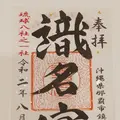 奉拝
沖縄県那覇市鎮
識名宮
琉球八社之一社
令和二年八月